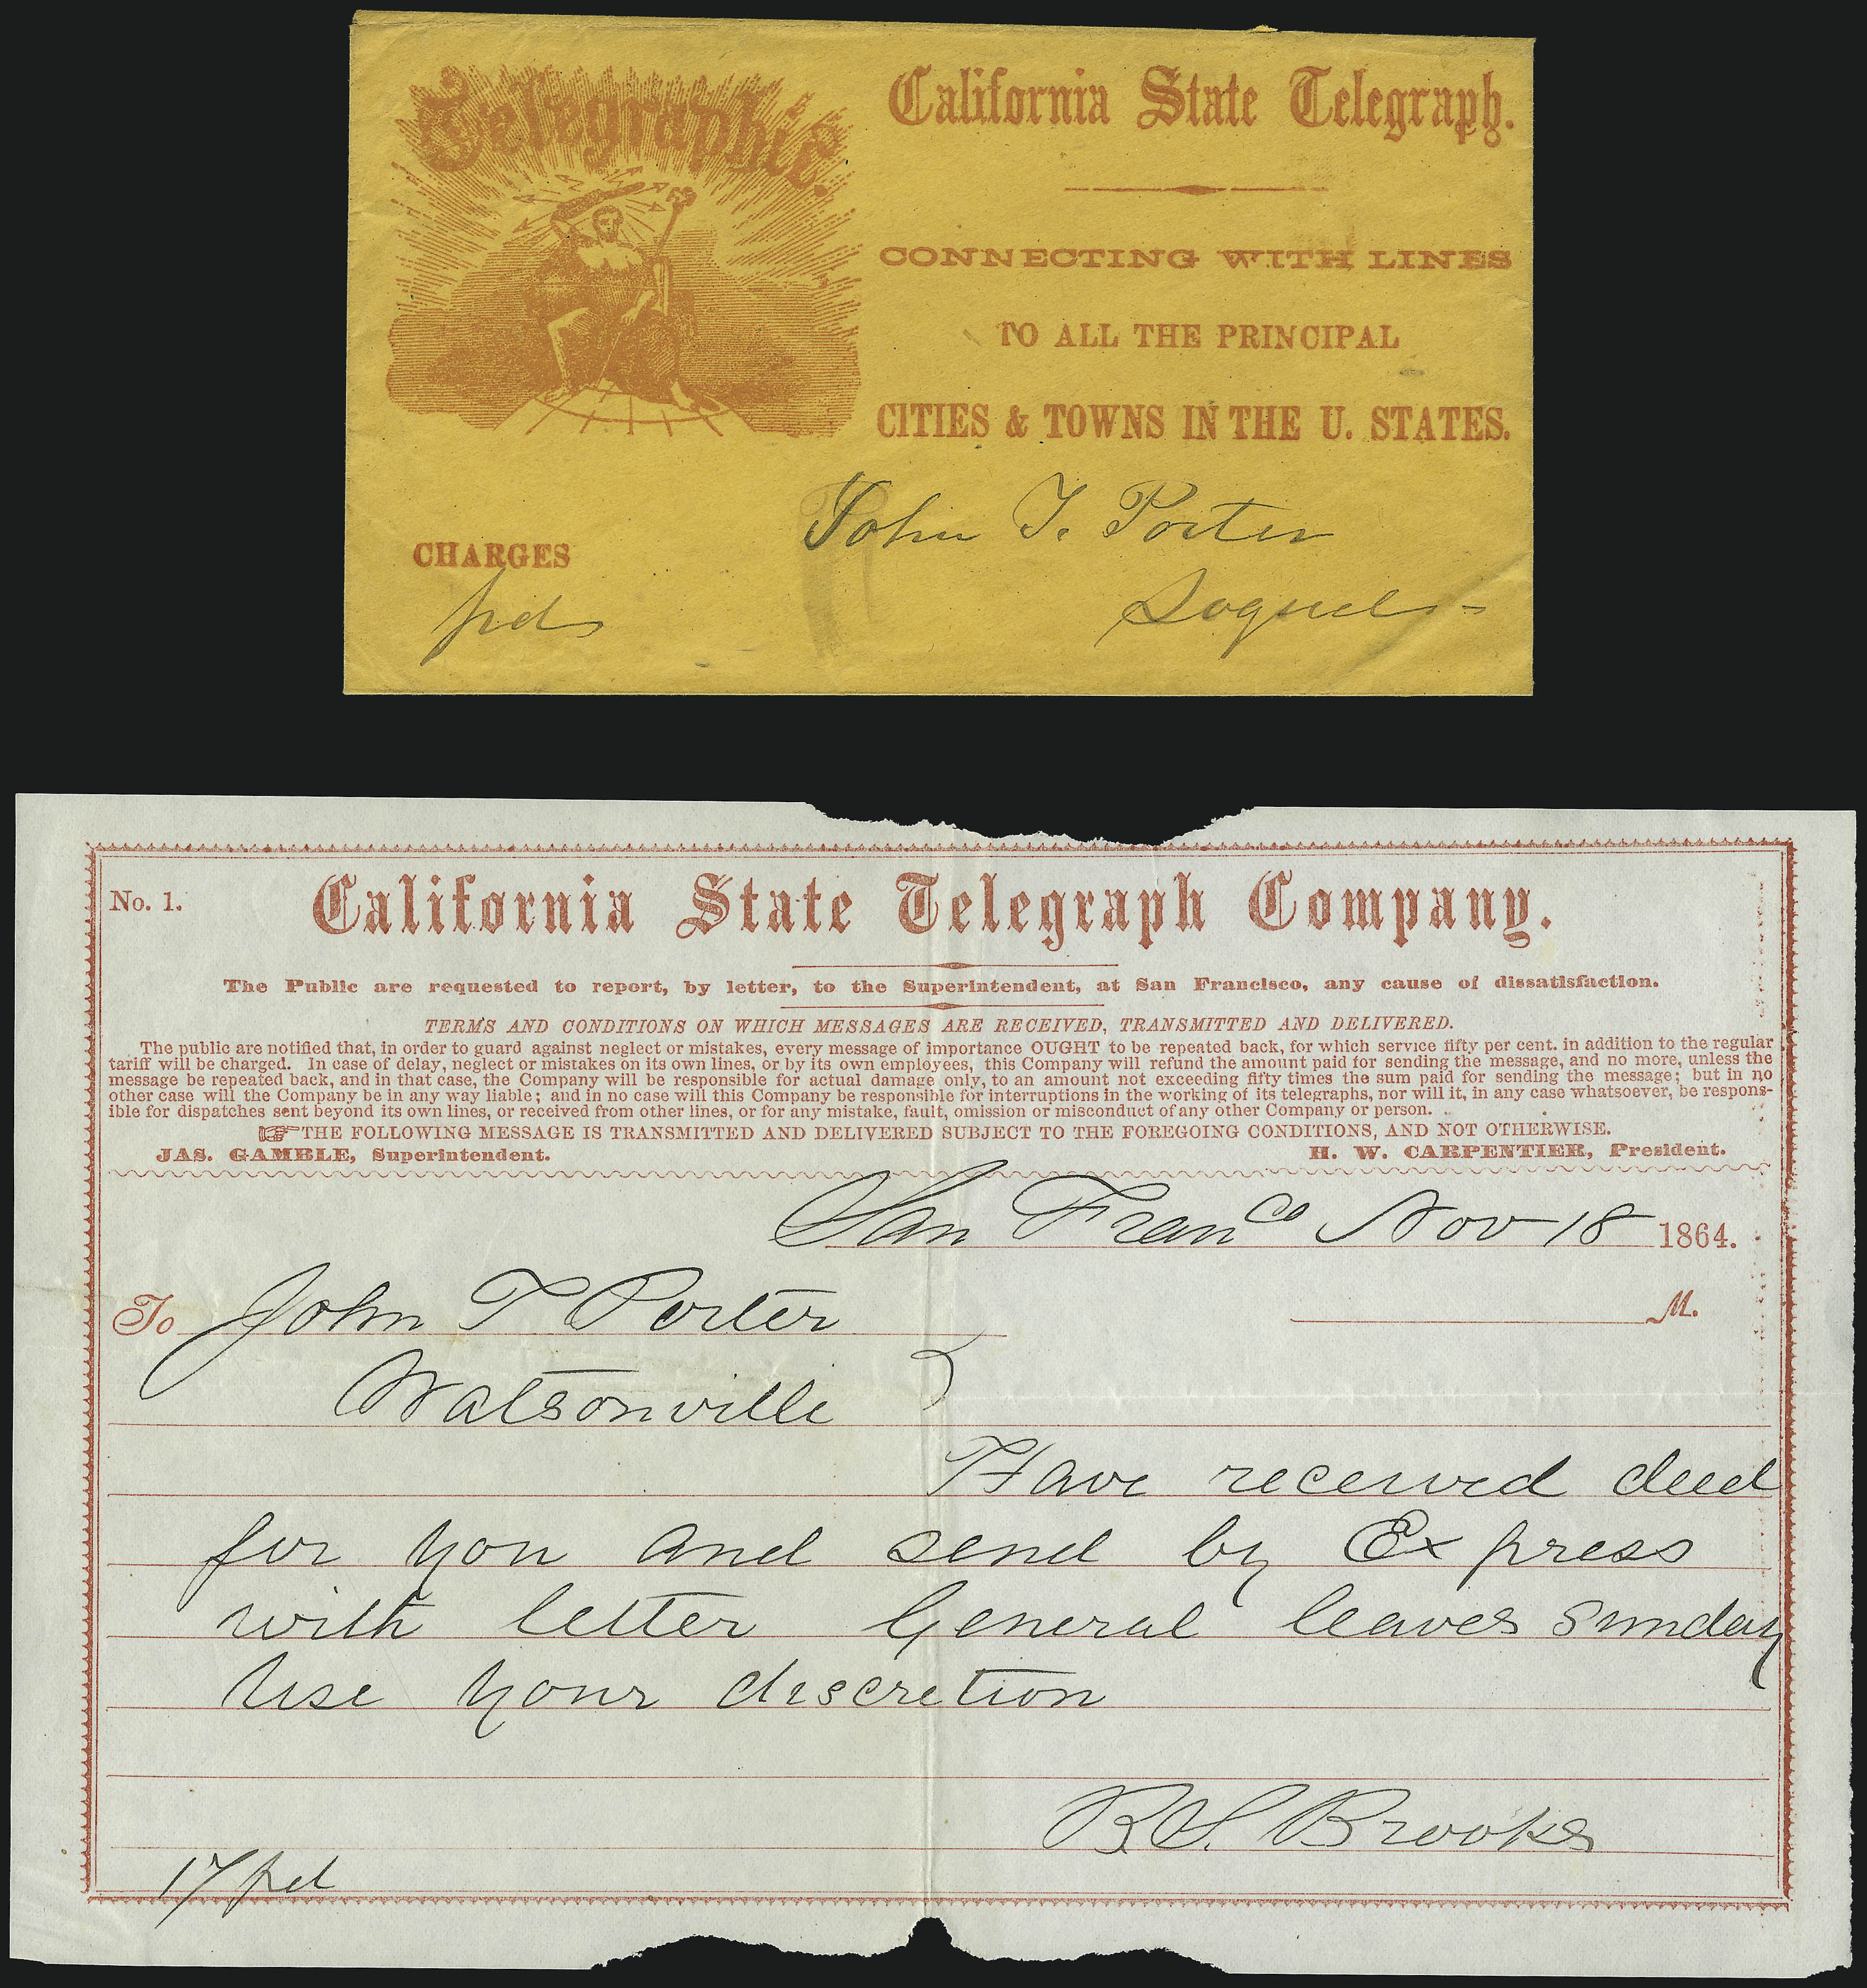 Telegraphic.
California State Telegraph.
CONNECTING WITH LINES
TO ALL THE PRINCIPAL
CITIES & TOWNS IN THE U. STATES.
John T. Porter
CHARGES
pd
Soquel
No. 1.
California State Telegraph Company.
The Public are requested to report, by letter, to the Superintendent, at San Francisco, any cause of dissatisfaction.
TERMS AND CONDITIONS ON WHICH MESSAGES ARE RECEIVED, TRANSMITTED AND DELIVERED.
The public are notified that, in order to guard against neglect or mistakes, every message of importance OUGHT to be repeated back, for which service fifty per cent. in addition to the regular
tariff will be charged. In case of delay, neglect or mistakes on its own lines, or by its own employees, this Company will refund the amount paid for sending the message, and no more, unless the
message be repeated back, and in that case, the Company will be responsible for actual damage only, to an amount not exceeding fifty times the sum paid for sending the message; but in no
other case will the Company be in any way liable; and in no case will this Company be responsible for interruptions in the working of its telegraphs, nor will it, in any case whatsoever, be respons-
ible for dispatches sent beyond its own lines, or received from other lines, or for any mistake, fault, omission or misconduct of any other Company or person.
☞THE FOLLOWING MESSAGE IS TRANSMITTED AND DELIVERED SUBJECT TO THE FOREGOING CONDITIONS, AND NOT OTHERWISE.
JAS. GAMBLE, Superintendent. H. W. CARPENTIER, President.
San Franco Nov 18 1864.
To John T Porter M.
Watsonville
Have received deed
for you and send by Express
with letter General leaves Sunday
Use your discretion
R.S. Brooks
17 pd